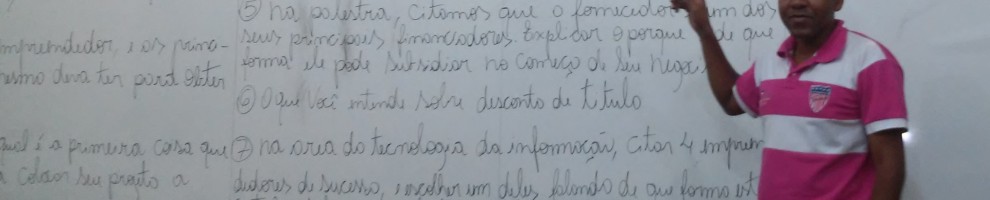 ⑤ na palestra, citamos que o fornecedor um dos
seus principais financiadores. Explicar o porque de que
forma ele pode subsidiar no começo do seu negoc
⑥ O que você intende sobre desconto de titulo
⑦ na area da tecnologia da informação, citar 4 empreen
dedores de sucesso, escolher um deles, falando de que forma
empreendedor, e as princi-
mesmo deva ter para obter
qual é a primeira coisa que
colocar seu projeto a